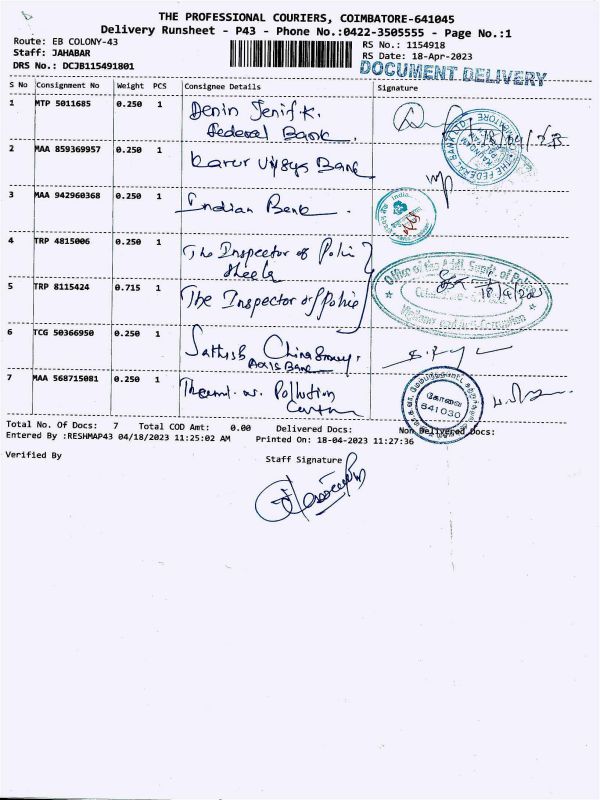 THE PROFESSIONAL COURIERS, COIMBATORE-641045
Delivery Runsheet - P43 - Phone No.:0422-3505555 - Page No.:1
Route: EB COLONY-43
Staff: JAHABAR
DRS No.: DCJB115491801
RS No.: 1154918
RS Date: 18-Apr-2023
DOCUMENT DELIVERY
S No Consignment No Weight PCS Consignee Details Signature
1 MTP 5011685 0.250 1 Denin Jenif K.
Federal Bank.
18/04/23
2 MAA 859369957 0.250 1 Karur Vysya Bank
3 MAA 942960368 0.250 1 Indian Bank.
4 TRP 4815006 0.250 1 The Inspector of Police
Sheela
5 TRP 8115424 0.715 1 The Inspector of Police
Office of the Addl. Supdt. of Police
18/4/2023
Vigilance and Anti-Corruption
6 TCG 50366950 0.250 1 Sathish
Axis Bank
7 MAA 568715081 0.250 1 Pollution
கோவை
641030
Total No. Of Docs: 7 Total COD Amt: 0.00 Delivered Docs: Non Delivered Docs:
Entered By :RESHMAP43 04/18/2023 11:25:02 AM Printed On: 18-04-2023 11:27:36
Verified By Staff Signature